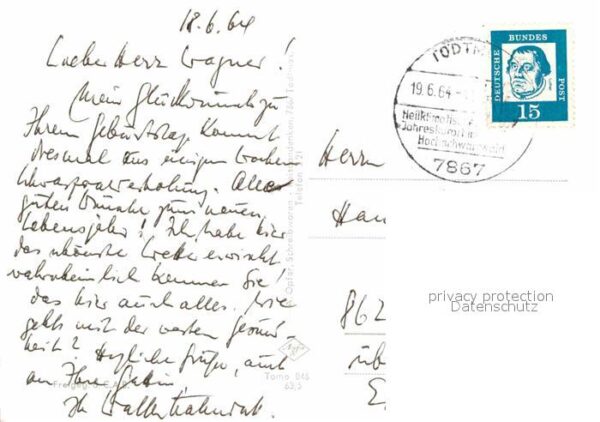 18.6.64
Lieber Herr Wagner!
Mein Glückwunsch zu
Ihrem Geburtstag kommt
diesmal aus einigen Wochen
Schwarzwalderholung. Alles
guten Wünsche zum neuen
Lebensjahr! Ich habe hier
das schönste Wetter erwischt
wahrscheinlich kennen Sie
das hier auch alles. Wie
geht's mit der werten Gesund-
heit? Herzliche Grüße, auch
an Ihre Gattin
Ihr
Telefon
Agfa
Tomo 846
63/5
TODTM
19.6.64
Heilklimatischer
Jahreskurort im
Hochschwarzwald
7867
DEUTSCHE
BUNDES
POST
15
Herrn
Han
862
üb
E
privacy protection
Datenschutz